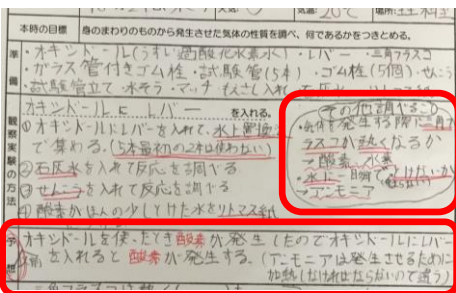 気温 20℃ 場所:理科室
本時の目標 身のまわりのものから発生させた気体の性質を調べ、何であるかをつきとめる。
準備
・オキシドール(うすい過酸化水素水)・レバー・三角フラスコ
・ガラス管付きゴム栓・試験管(5本)・ゴム栓(5個)・せんこう
・試験管立て・水そう・マッチ
観察実験の方法
オキシドールにレバーを入れる。
①オキシドールにレバーを入れて、水上置換法
で集める。(5本最初の2本は使わない)
②石灰水を入れて反応を調べる
③せんこうを入れて反応を調べる
④酸素がほんの少しとけた水をリトマス紙
その他調べること
・気体を発生する際に三角フ
ラスコが熱くなるか
→酸素、水素
・水に一瞬でとけないか
→アンモニア
予想
オキシドールを使ったとき酸素が発生したのでオキシドールにレバー
を入れると酸素が発生する。(アンモニアは発生させるために
加熱しなければならないので違う)